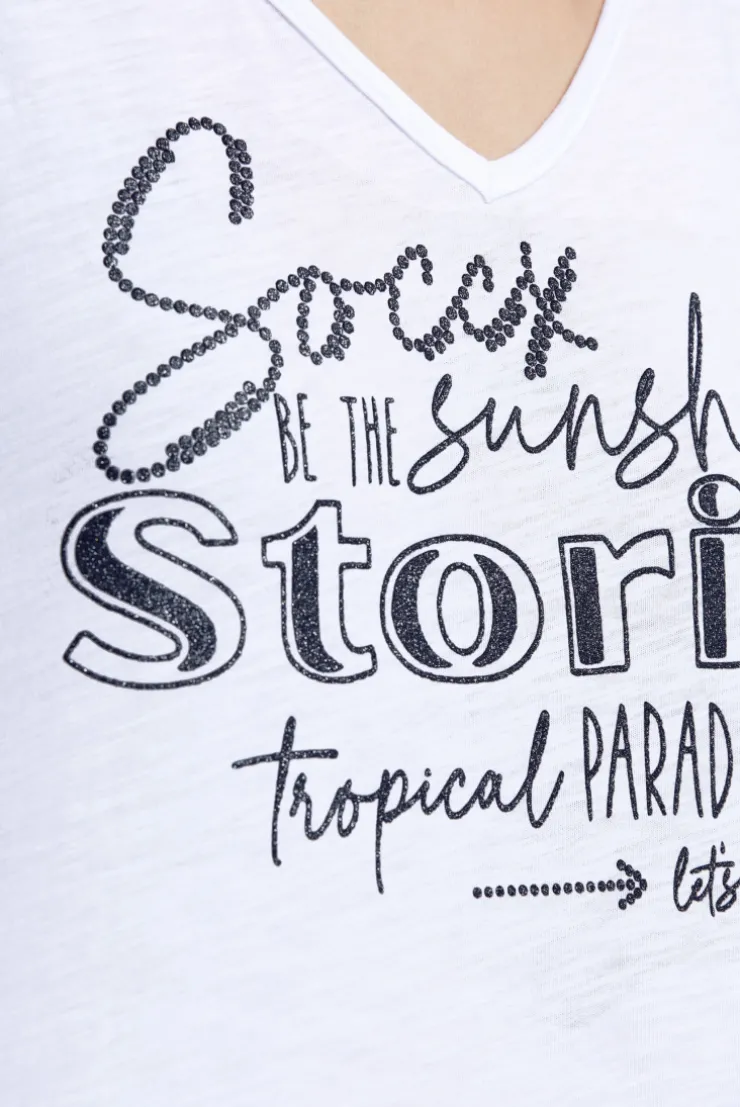 Soccx
BE THE sunsh
Stori
tropical PARAD
let's